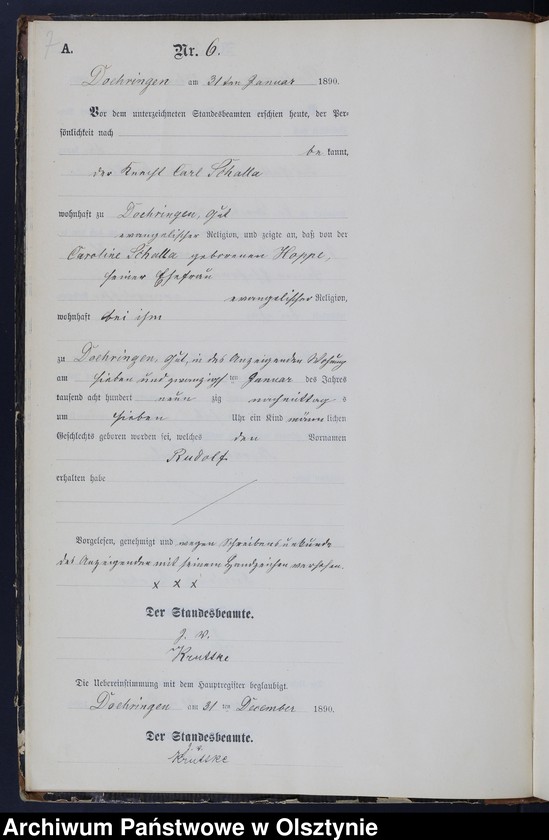 A.
Nr. 6.
Doehringen am 31ten Januar 1890.
Vor dem unterzeichneten Standesbeamten erschien heute, der Per-
sönlichkeit nach
be kannt,
der Knecht Carl Schalla
wohnhaft zu Doehringen, Gut
evangelischer Religion, und zeigte an, daß von der
Caroline Schalla geborenen Hoppe,
seiner Ehefrau
evangelischer Religion,
wohnhaft bei ihm
zu Doehringen, Gut, in des Anzeigenden Wohnung
am sieben und zwanzigsten Januar des Jahres
tausend acht hundert neun zig nachmittag s
um sieben Uhr ein Kind männlichen
Geschlechts geboren worden sei, welches den Vornamen
Rudolf
erhalten habe
Vorgelesen, genehmigt und wegen Schreibensunkunde
des Anzeigenden mit seinem Handzeichen versehen.
x x x
Der Standesbeamte.
J. V.
Kruttke
Die Uebereinstimmung mit dem Hauptregister beglaubigt.
Doehringen am 31 ten December 1890.
Der Standesbeamte.
J. V.
Kruttke
Archiwum Państwowe w Olsztynie